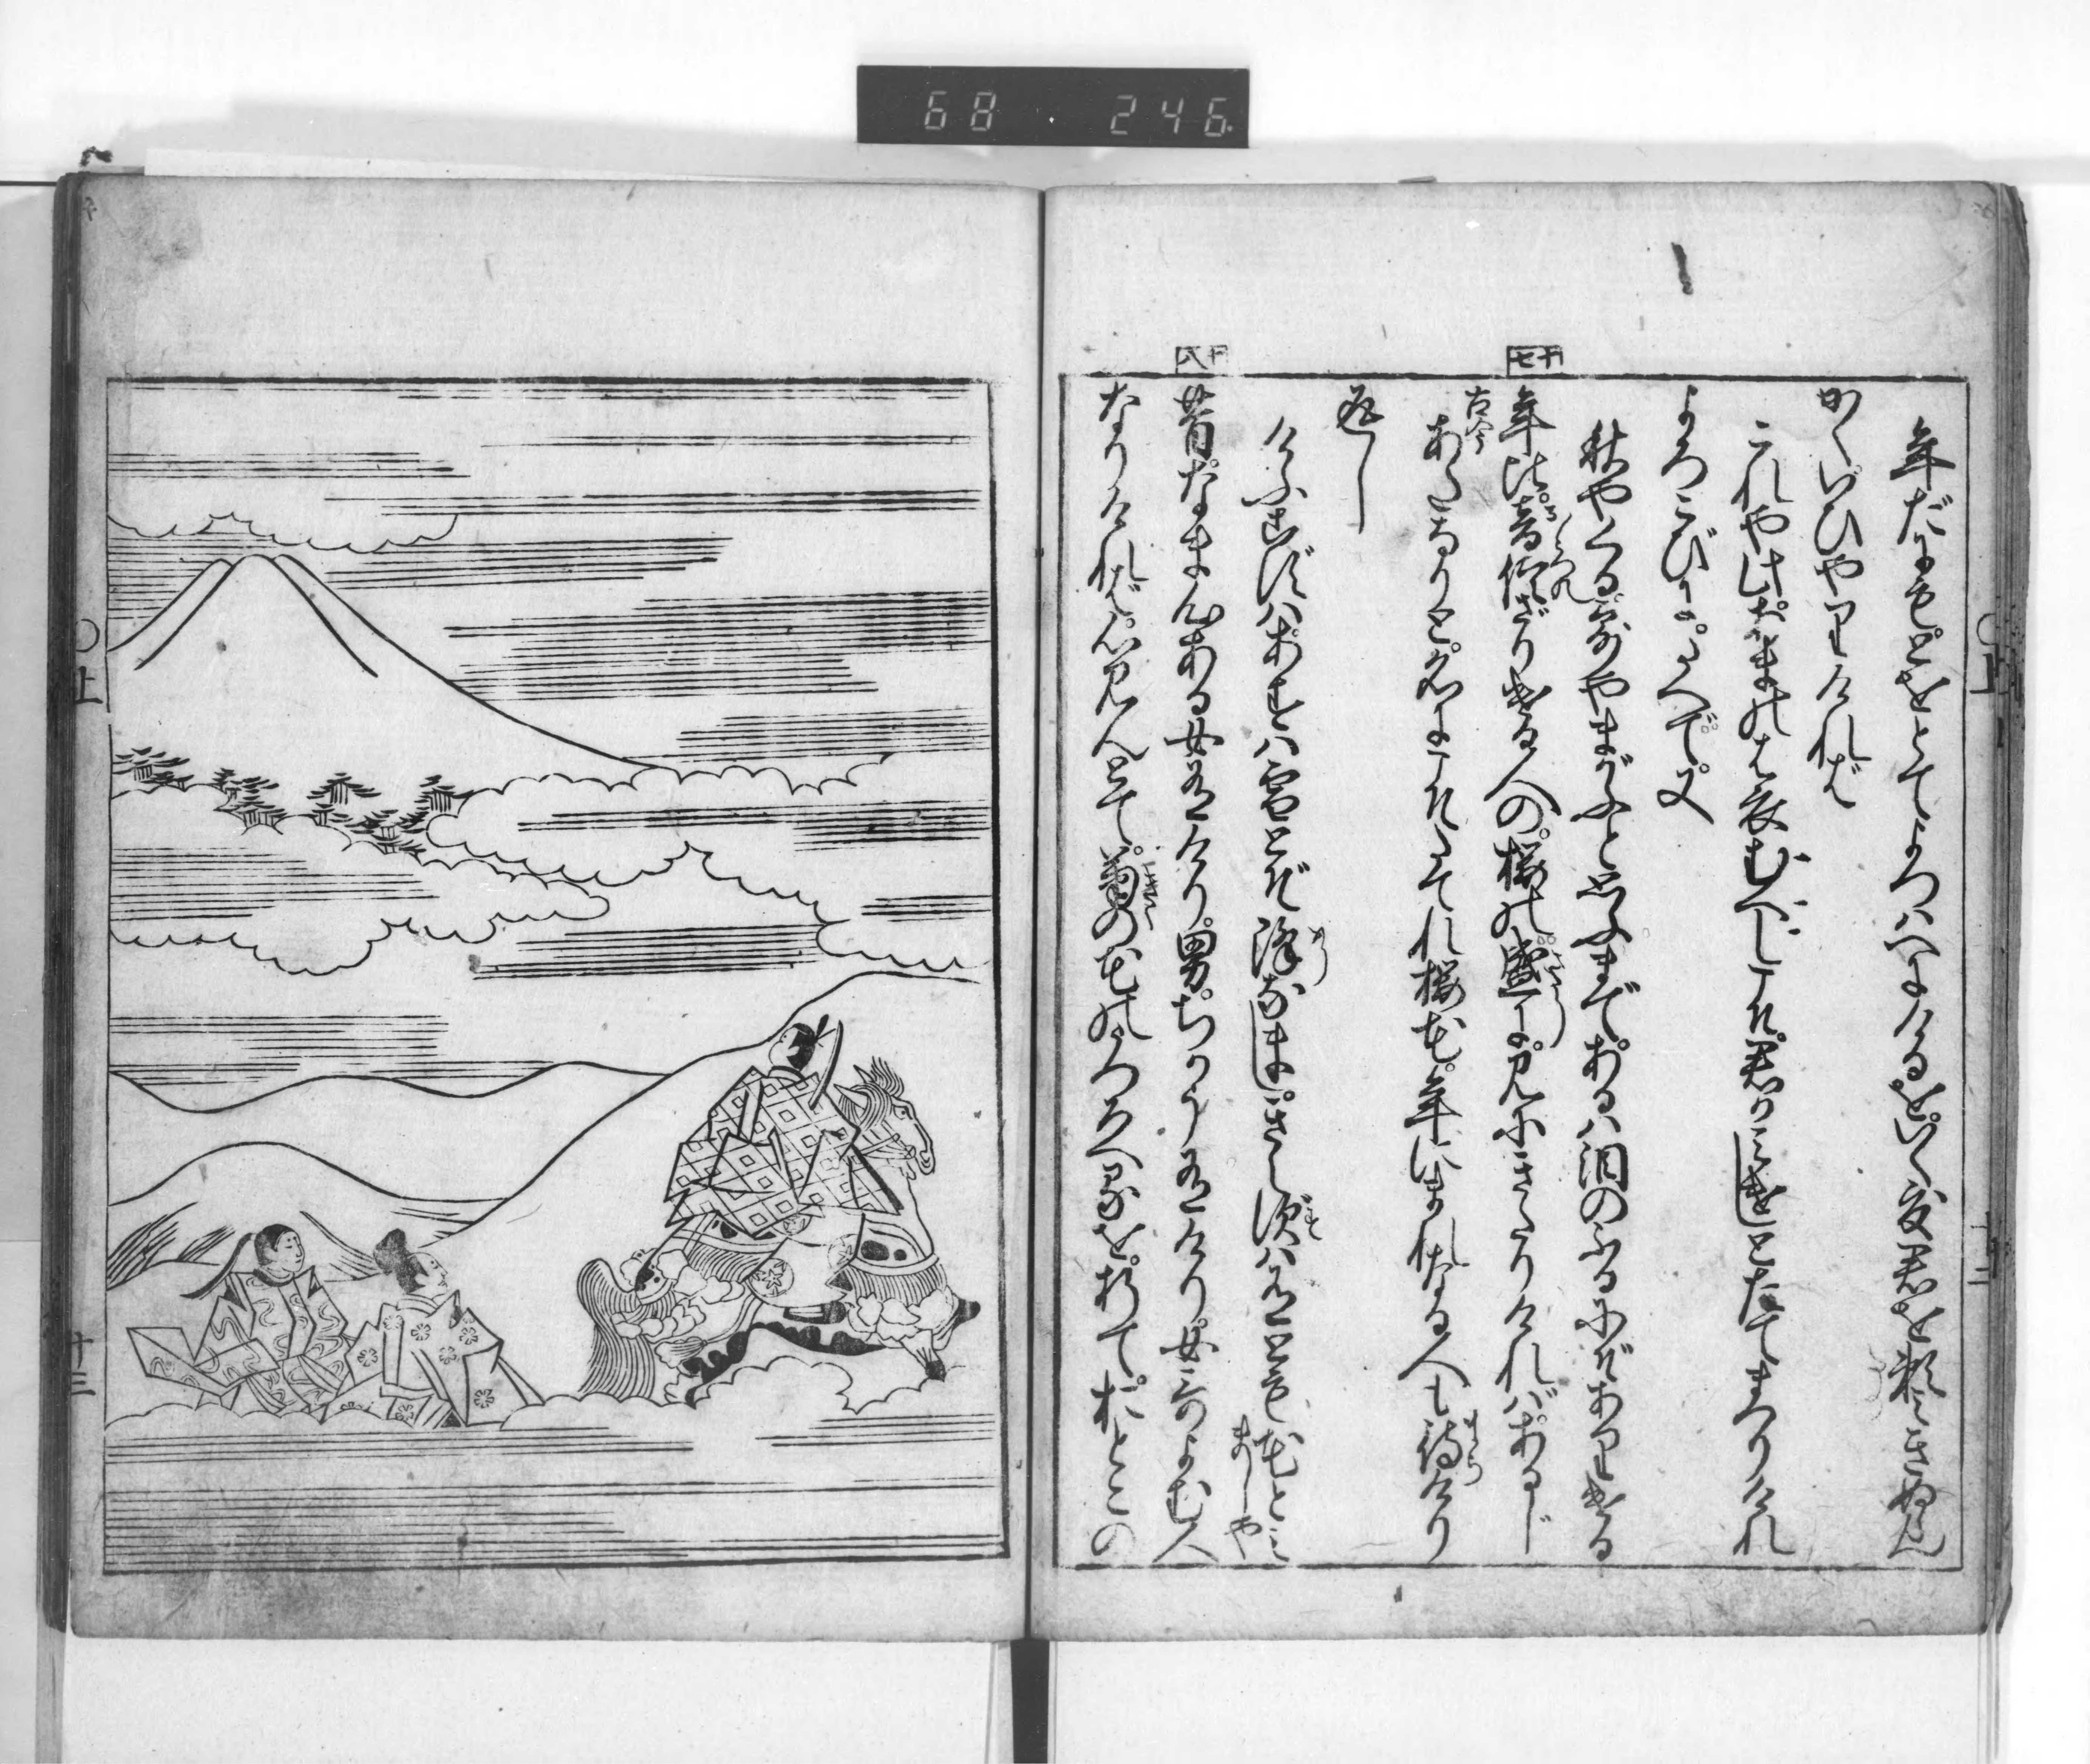 68 246
年だにもとをとてよつはへにけるをいく度君を頼みきぬらん
かくいひやりければ
これやこのあまのは衣むべしこそ君がみけしとたてまつりけれ
よろこびにたへで又
秋やくる露やまがふと思ふまであるは泪のふるにぞありける
十七
年比音信ざりける人の桜の盛に見にきたりければあるじ
おとづれ
さかり
古今
あだなりと名にこそたてれ桜花年にまれなる人も待けり
まち
返し
けふこずはあすは雪とぞ降なましきえず は有とも花とみ
ましや
ふり
十八
昔なま心ある女有けり男ちかう有けり女哥よむ人
なりければ心見んとて菊の花のうつろへるを折ておとこの
きく
上
十三